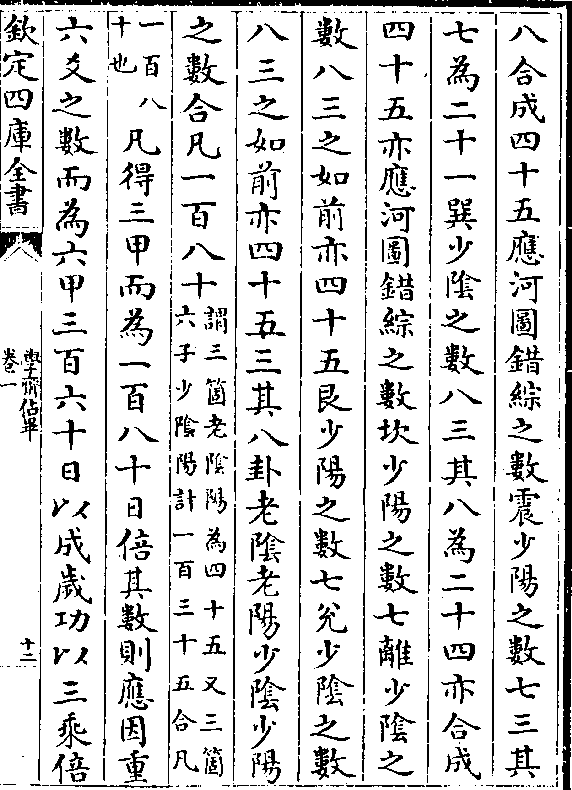 八合成四十五應河圖錯綜之數震少陽之數七三其
七為二十一巽少陰之數八三其八為二十四亦合成
四十五亦應河圖錯綜之數坎少陽之數七離少陰之
數八三之如前亦四十五艮少陽之數七兌少陰之數
八三之如前亦四十五三其八卦老陰老陽少陰少陽
之數合凡一百八十謂三箇老陰陽為四十五又三箇
六子少陰陽計一百三十五合凡
一百八
十也
凡得三甲而為一百八十日倍其數則應因重
六爻之數而為六甲三百六十日以成歲功以三乘倍
欽定四庫全書
學齋佔畢
卷一
十二